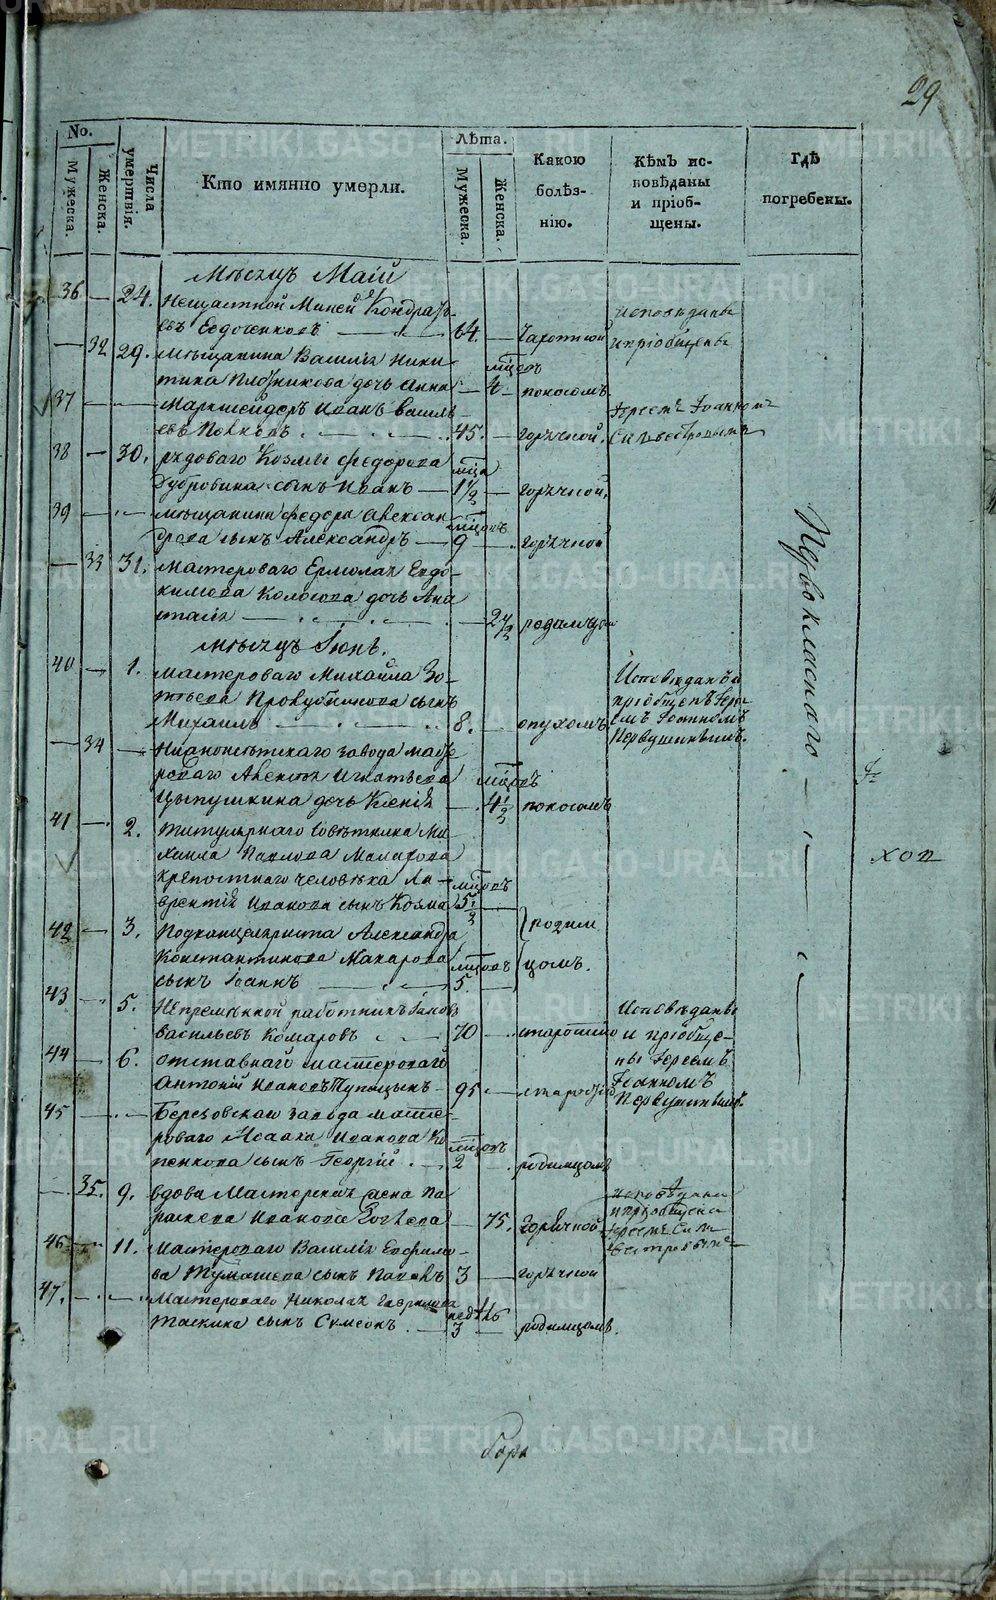 29
No.
Мужеска.
Женска.
Числа умертвія.
Кто имянно умерли.
Лѣта.
Мужеска.
Женска.
Какою болѣзнію.
Кѣмъ исповѣданы и пріобщены.
Гдѣ погребены.
Мѣсяцъ Маій
36 — 24. Нещастной Миней Кондрать-
евъ Евдокимовъ — 64. — Чахоткой
исповѣданы
и пріобщены
— 32 29. Мѣщанина Василія Ники-
тина Плотникова дочь Анна — 4 поносомъ
37 — Маркшейдеръ Иванъ Василь-
евъ Поповъ 45. — горячкой.
Іереемъ Іоанномъ
Сильвестровымъ
38 — 30. рядоваго Козмы Федорова
Дубровина сынъ Иванъ — 1½ — горячкой.
39 — мѣщанина Федора Алексан-
дрова сынъ Александръ — 9 — горячкой
— 33 31. Мастероваго Ермолая Евдо-
кимова Колосова дочь Ана-
стасія — 2½ родимцомъ
Мѣсяцъ Іюнь.
40 — 1. мастероваго Михайла Зо-
тѣева Прокубникова сынъ
Михаилъ 8. опухомъ
Исповѣданъ и
пріобщенъ Іере-
емъ Іоанномъ
Первушинымъ.
— 34 — завода масте-
роваго Алексѣя Игнатьева
Цыпушкина дочь Ксенія — 4½ поносомъ
41 — 2. Титулярнаго Совѣтника Ми-
хаила Павлова Макарова
крепостнаго человѣка Ла-
врентія Иванова сынъ Козма 5½
42 — 3. Подканцеляриста Александра
Константинова Макарова
сынъ Іоаннъ — 5
родим
цомъ.
43 — 5. Непремѣнной работникъ Іаковъ
Васильевъ Комаровъ 70 — старостію
Исповѣданы
и пріобще-
ны Іереемъ
Іоанномъ
Первушинымъ.
44 — 6. отставнаій мастеровай
Антоній Ивановъ Пупацынъ 95 — старостію
45 — Березовскаго завода масте-
роваго Исаака Иванова Ко-
пенкова сынъ Георгій. 2 родимцомъ
— 35. 9. вдова Мастерская жена Па-
раскева Иванова — 75. Горячкой
исповѣдана
и пріобщена
Іереемъ Силь-
вестровымъ
46 — 11. Мастероваго Василія Ефимо-
ва Тумашева сынъ Павелъ 3 — горячкой
47. — Мастероваго Николая Гаврилова
Таскина сынъ Сѵмеонъ. 3 — родимцомъ.
METRIKI.GASO-URAL.RU